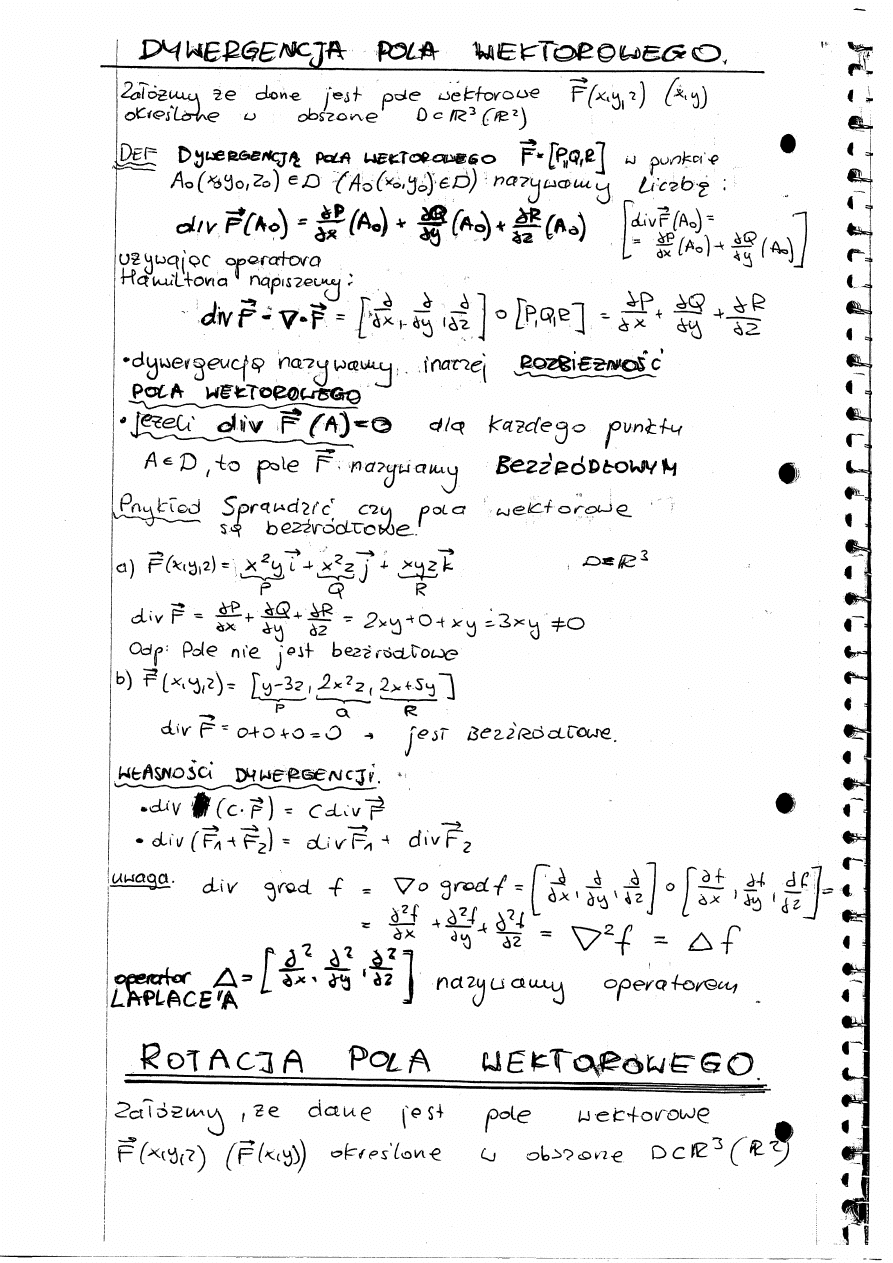 DYWERGENCJA POLA WEKTOROWEGO.
Załózmy ze dane jest pole wektorowe F⃗(x,y,z) (x,y)
określone w obszone D⊂ℝ³(ℝ²)
DEF DYWERGENCJĄ POLA WEKTOROWEGO F⃗=[P,Q,R] w punkcie
A₀(x₀y₀,z₀)∈D (A₀(x₀,y₀)∈D) nazywamy liczbę:
div F⃗(A₀) = ∂P/∂x (A₀) + ∂Q/∂y (A₀) + ∂R/∂z (A₀) [div F⃗(A₀) =
= ∂P/∂x (A₀) + ∂Q/∂y (A₀)]
używając operatora
Hamiltona napiszemy:
div F⃗ = ∇∘F⃗ = [∂/∂x, ∂/∂y, ∂/∂z] ∘ [P,Q,R] = ∂P/∂x + ∂Q/∂y + ∂R/∂z
•dywergencję nazywamy inaczej ROZBIEZNOŚĆ
POLA WEKTOROWEGO
• jezeli div F⃗ (A)=0 dla kazdego punktu
A∈D, to pole F⃗ nazywamy BEZŹRÓDŁOWYM
Pnykład Sprawdzić czy pola wektorowe
są bezźródłowe.
a) F⃗(x,y,z) = x²y i⃗ + x²z j⃗ + xyz k⃗ D=ℝ³
P Q R
div F⃗ = ∂P/∂x + ∂Q/∂y + ∂R/∂z = 2xy+0+xy = 3xy ≠0
Odp: Pole nie jest bezźródłowe
b) F⃗(x,y,z) = [y-3z, 2x²z, 2x+5y]
P Q R
div F⃗ = 0+0+0=0 → jest BEZŹRÓDŁOWE.
WŁASNOŚCI DYWERGENCJI.
•div (C·F⃗) = C div F⃗
• div (F⃗₁+F⃗₂) = div F⃗₁ + div F⃗₂
uwaga. div grad f = ∇∘ grad f = [∂/∂x, ∂/∂y, ∂/∂z] ∘ [∂f/∂x, ∂f/∂y, ∂f/∂z] =
= ∂²f/∂x + ∂²f/∂y + ∂²f/∂z = ∇²f = Δf
operator Δ = [∂²/∂x, ∂²/∂y, ∂²/∂z] nazywamy operatorem
LAPLACE'A
ROTACJA POLA WEKTOROWEGO.
Załózmy, ze dane jest pole wektorowe
F⃗(x,y,z) (F⃗(x,y)) określone w obszone D⊂ℝ³(ℝ²)